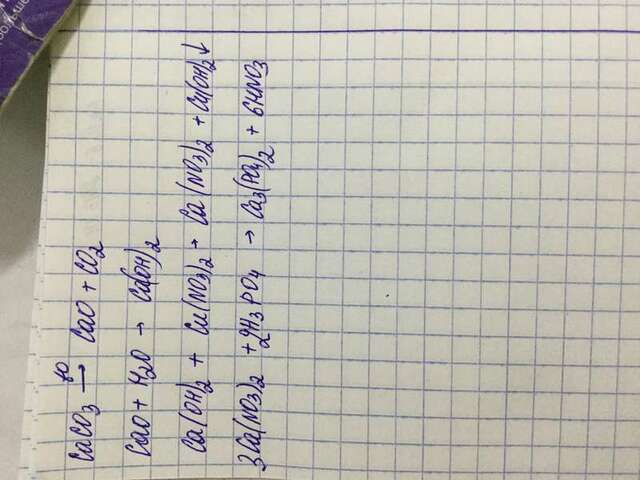 CaCO3 t° → CaO + CO2
CaO + H2O → Ca(OH)2
Ca(OH)2 + Cu(NO3)2 → Ca(NO3)2 + Cu(OH)2↓
3Ca(NO3)2 + 2H3PO4 → Ca3(PO4)2 + 6HNO3